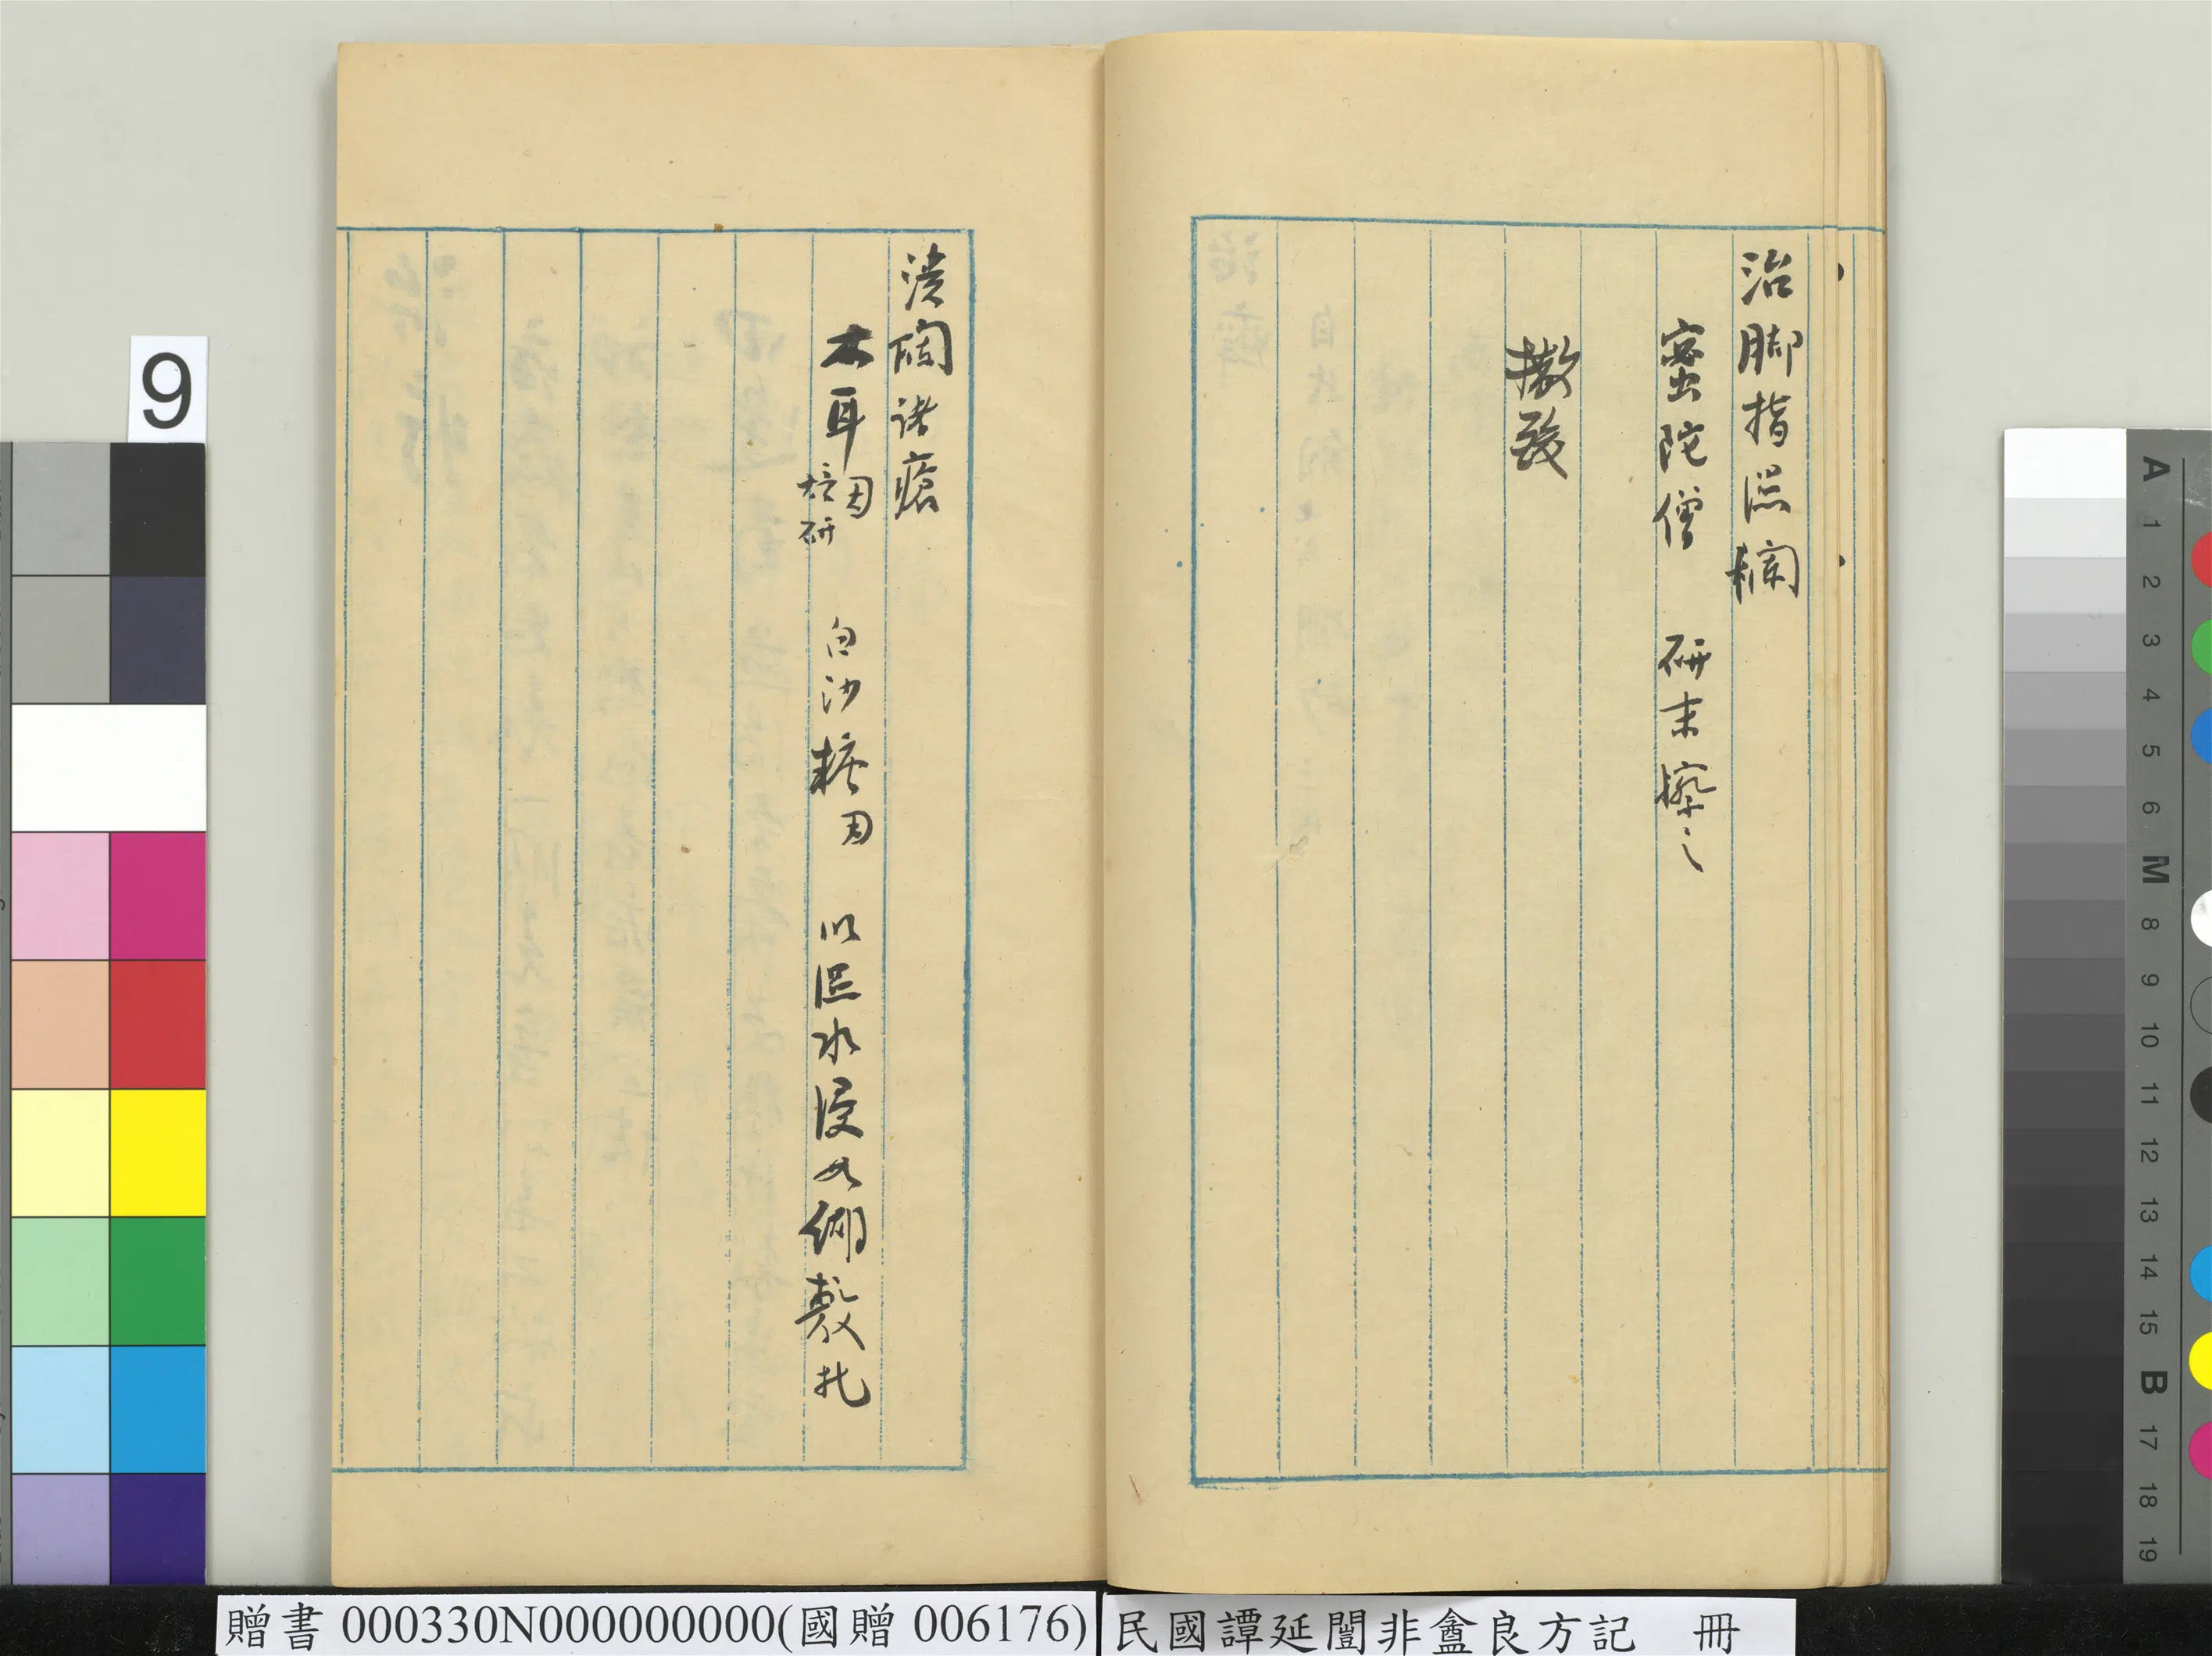 治脚指濕爛
蜜陀僧 研末擦之
潰爛諸瘡
木耳一两焙研 白沙糖一两 以温水浸如糊敷扎
9
A 1 2 3 4 5 6 M 8 9 10 11 12 13 14 15 B 17 18 19
贈書 000330N000000000(國贈 006176)
民國譚延闓非盦良方記 冊